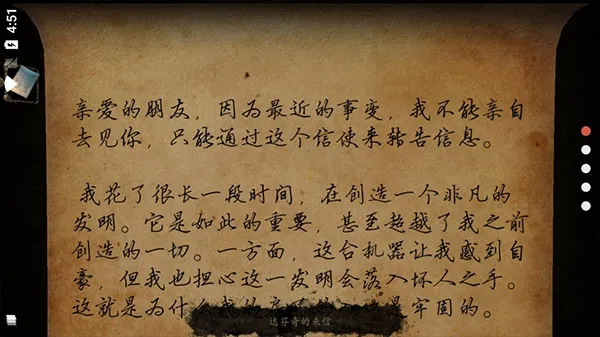 4:51
亲爱的朋友，因为最近的事变，我不能亲自
去见你，只能通过这个信使来转告信息。
我花了很长一段时间，在创造一个非凡的
发明。它是如此的重要，甚至超越了我之前
创造的一切。一方面，这台机器让我感到自
豪，但我也担心这一发明会落入坏人之手。
这就是为什么我的 是牢固的。
达芬奇的来信